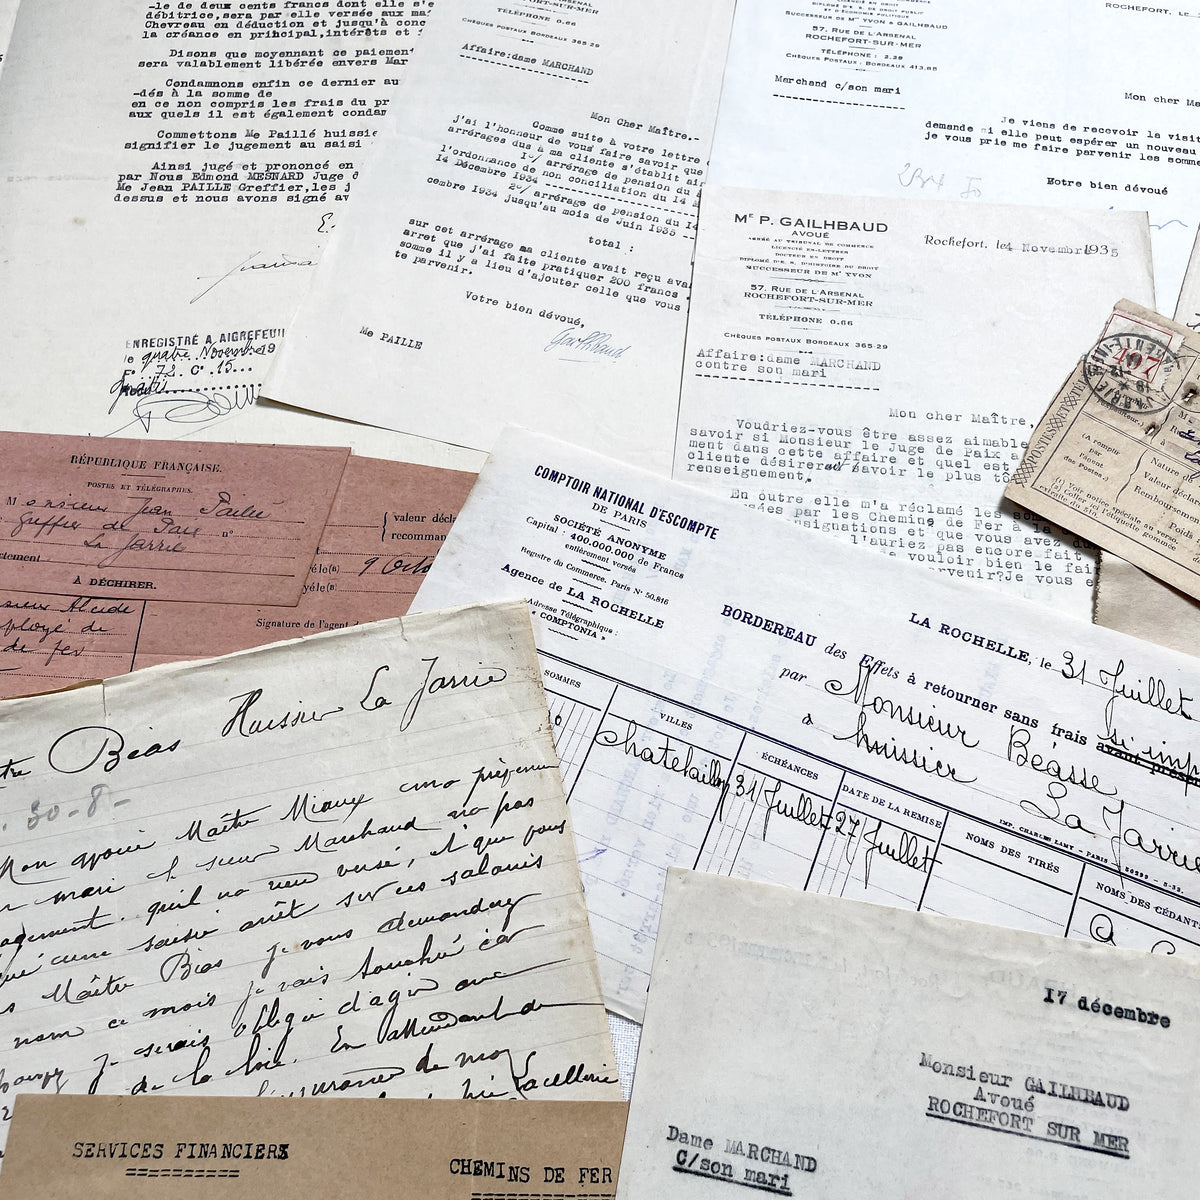 -le de deux cents francs dont elle s'e
débitrice, sera par elle versée aux ma
Chevreau en déduction et jusqu'à conc
la créance en principal, intérêts et
Disons que moyennant ce paiement
sera valablement libérée envers Mar
Condamnons enfin ce dernier au
-dés à la somme de
en ce non compris les frais du pr
aux quels il est également condam
Commettons Me Paillé huissie
signifier le jugement au saisi
Ainsi jugé et prononcé en
par Nous Edmond MESNARD Juge d
Me Jean PAILLE Greffier, les j
dessus et nous avons signé av
ENREGISTRÉ A AIGREFEUIL
le quatre Novembre 19
F° 72. C. 15...
ROCHEFORT-SUR-MER
TÉLÉPHONE 0.66
CHÈQUES POSTAUX BORDEAUX 365 29
Affaire: dame MARCHAND
Mon Cher Maître,-
Comme suite à votre lettre
j'ai l'honneur de vous faire savoir que
arrérages dus à ma cliente s'établit ain
1°/ arrérage de pension du
l'ordonnance de non conciliation du 14 M
14 Décembre 1934
2°/ arrérage de pension du 14
cembre 1934 jusqu'au mois de Juin 1935 --
total :
sur cet arrérage ma cliente avait reçu ava
arret que j'ai faite pratiquer 200 francs
somme il y a lieu d'ajouter celle que vous
te parvenir.
Votre bien dévoué,
Me PAILLE
Gailhbaud
SUCCESSEUR DE Me YVON & GAILHBAUD
57, RUE DE L'ARSENAL
ROCHEFORT-SUR-MER
TÉLÉPHONE : 2.39
CHÈQUES POSTAUX : BORDEAUX 413.65
ROCHEFORT, LE
Marchand c/son mari
Mon cher Me
Je viens de recevoir la visit
demande si elle peut espérer un nouveau
je vous prie me faire parvenir les somme
Votre bien dévoué
Me P. GAILHBAUD
AVOUÉ
AGRÉÉ AU TRIBUNAL DE COMMERCE
LICENCIÉ ES-LETTRES
DOCTEUR EN DROIT
DIPLOMÉ D'E. S. D'HISTOIRE DU DROIT
SUCCESSEUR DE Me YVON
57, RUE DE L'ARSENAL
ROCHEFORT-SUR-MER
TÉLÉPHONE 0.66
CHÈQUES POSTAUX BORDEAUX 365.29
Rochefort, le 4 Novembre 1935
Affaire: dame MARCHAND
contre son mari
Mon cher Maître,
Voudriez-vous être assez aimable
savoir si Monsieur le Juge de Paix a
ment dans cette affaire et quel est
cliente désirerait savoir le plus tô
renseignement.
En outre elle m'a réclamé les som
sées par les Chemins de Fer à la
nsignations et que vous avez du
l'auriez pas encore fait
vouloir bien le fai
rvenir? Je vous e
POSTES ET TÉ
(A remplir
par
l'agent
des Postes.)
Nature de
Valeur décl
Remboursem
Poids
(1) Voir notice spéciale au verso.
(2) Coller ici l'étiquette gommée
extraite du 510.
RÉPUBLIQUE FRANÇAISE.
POSTES ET TÉLÉGRAPHES.
Monsieur Jean Paillé
Greffier de Paix n°
La Jarrie
À DÉCHIRER.
valeur décla
recomman
9 Octo
Signature de l'agent d
sieur Alcide
ployé de
de fer
COMPTOIR NATIONAL D'ESCOMPTE
DE PARIS
SOCIÉTÉ ANONYME
Capital : 400.000.000 de Francs
entièrement versés
Registre du Commerce, Paris N° 50.816
Agence de LA ROCHELLE
Adresse Télégraphique :
" COMPTONIA "
LA ROCHELLE, le 31 Juillet
BORDEREAU des Effets à retourner sans frais
par Monsieur Béasse
à huissier
La Jarrie
IMP. CHARLES LAMY - PARIS
SOMMES
VILLES
ÉCHÉANCES
DATE DE LA REMISE
NOMS DES TIRÉS
NOMS DES CÉDANT
Chatelaillon
31 Juillet
27 Juillet
tre Béas Huissier La Jarrie
30-8-
Mon avoué Maître Miaux ma prévenu
mari le sieur Marchand na pas
agement quil na rien versé, et que vous
qué une saisie arrêt sur ces salaires
s Maître Béas je vous demanderez
nom ce mois je vais touché car
je serais obligé d'agir avec
de la loie. En attendant de
SERVICES FINANCIERS
CHEMINS DE FER
17 décembre
Monsieur GAILHBAUD
Avoué
ROCHEFORT SUR MER
Dame MARCHAND
C/son mari